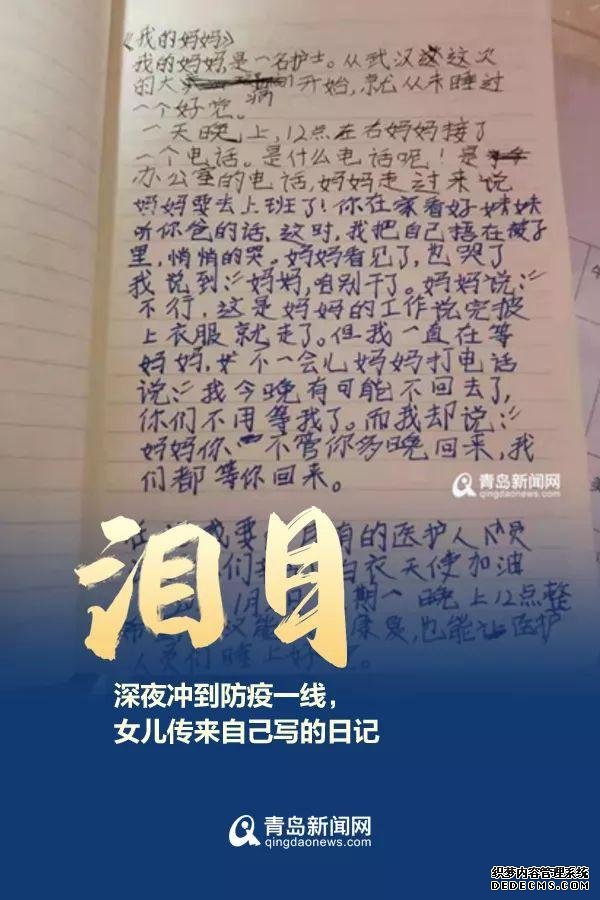 《我的妈妈》
我的妈妈是一名护士。从武汉这次
的大病开始,就从未睡过
一个好觉。
一天晚上,12点左右妈妈接了
一个电话。是什么电话呢!是
办公室的电话,妈妈走过来说
妈妈要去上班了!你在家看好妹妹
听你爸的话、这时,我把自己捂在被子
里,悄悄的哭。妈妈看见了,也哭了
我说到:“妈妈,咱别干了。妈妈说:“
不行,这是妈妈的工作说完披
上衣服就走了。但我一直在等
妈妈,不一会儿妈妈打电话
说:“我今晚有可能不回去了,
你们不用等我了。而我却说:“
妈妈你不管你多晚回来,我
们都等你回来。
青岛新闻网
qingdaonews.com
我要 有的医护人员
们 白衣天使加油
1月 期 晚上12点整
能 康复,也能让医护
人员们睡上好
泪目
深夜冲到防疫一线,
女儿传来自己写的日记
青岛新闻网
qingdaonews.com
织梦内容管理系统
DEDECMS.COM